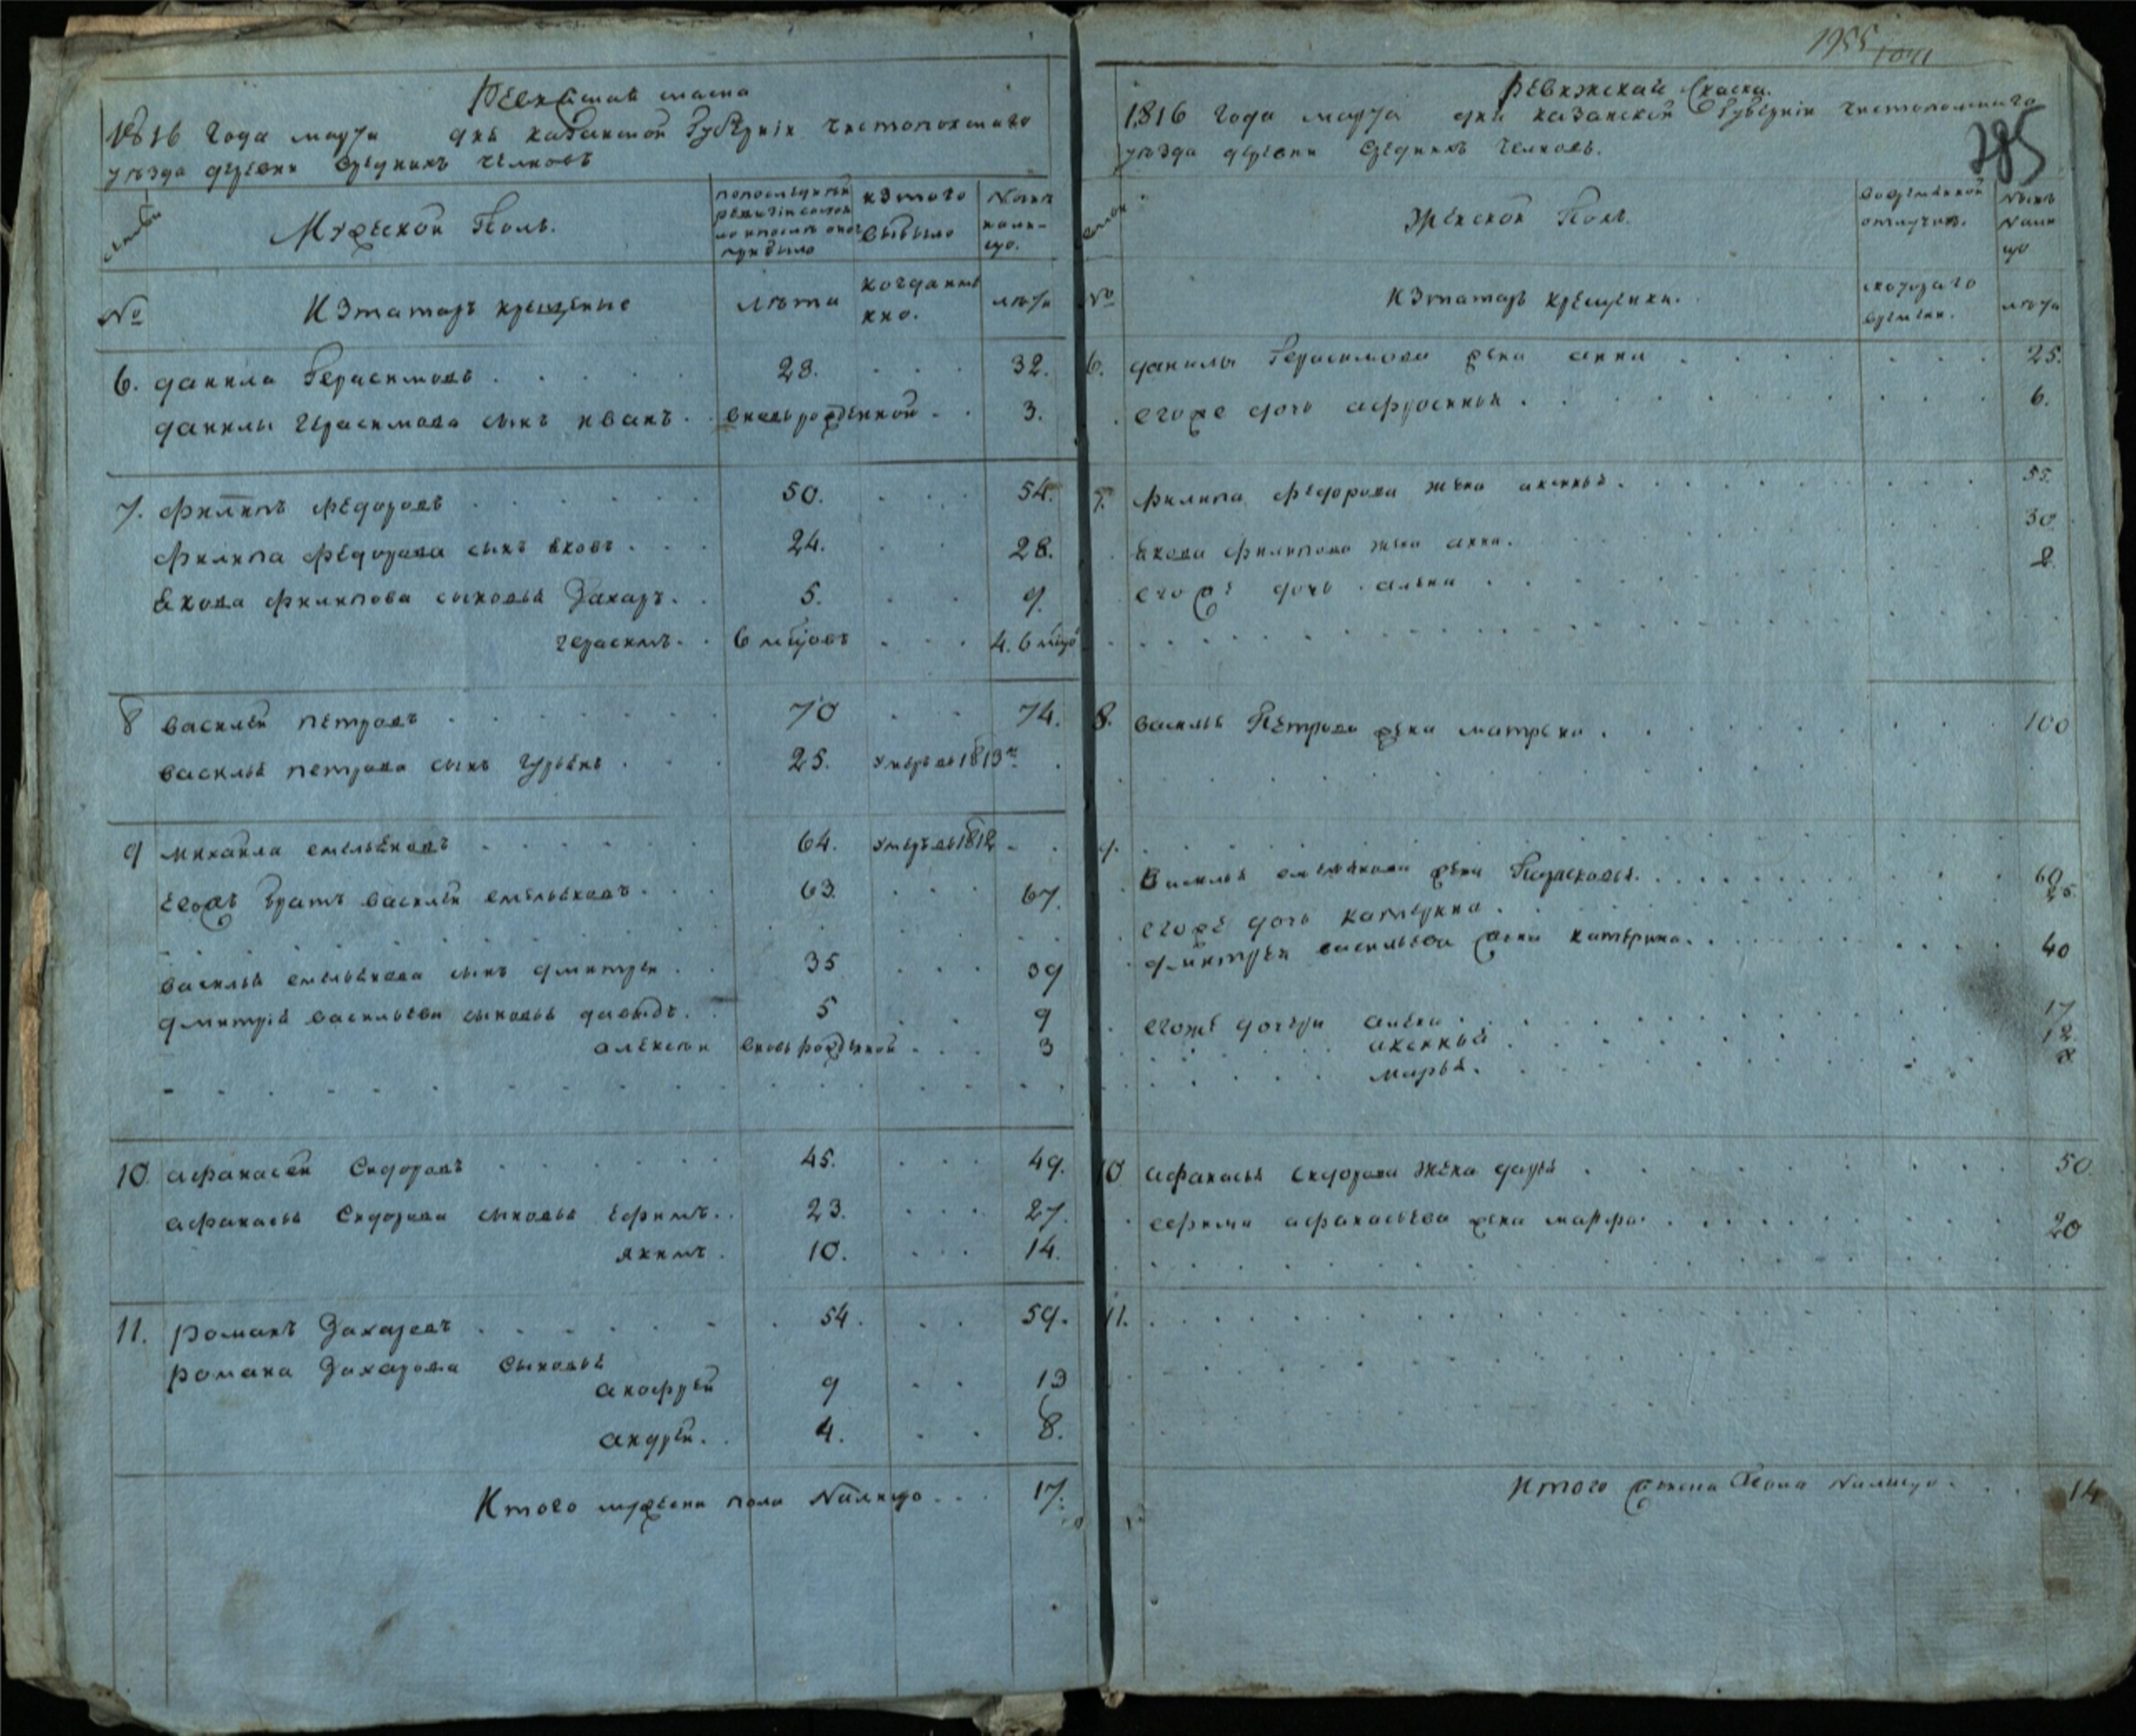 Ревижская скаска
1816 года марта дня казанской Губерніи чистопольскаго
уѣзда деревни Средникъ челновъ
Семьи
Мужескои Полъ.
попоследней
ревизіи состоя
ло ипослѣ оной
прибыло
изтого
выбыло
Nынѣ
нали-
цо.
№
Изтатаръ крещеные
лѣта
когдаиме
нно.
лѣта
6. данила Герасимовъ 28. 32.
данилы герасимова сынъ иванъ. вновьрожденной 3.
7. филипъ федоровъ 50. 54.
филипа федорова сынъ яковъ 24. 28.
якова филипова сыновья Захаръ. 5. 9.
герасимъ. 6 мцовъ 4. 6 мцо
8 василеи петровъ 70 74.
василья петрова сынъ гурьянъ 25. умеръ въ 1813г.
9 михаила емельяновъ 64. умеръ въ 1812
Егожъ братъ василеи емельяновъ 63. 67.
василья емельянова сынъ дмитреи 35 39
дмитрія васильева сыновья давыдъ. 5 9
алексеи вновь рожденной 3
10 афанасеи Сидоровъ 45. 49.
афанасья Сидорова сыновья ефимъ. 23. 27.
якимъ. 10. 14.
11. романъ Захаровъ 54. 59.
романа Захарова Сыновья
анофреи 9 13
андреи. 4. 8.
Итого мужеска пола Nалицо 17.
1955
285
Ревижская Скаска.
1816 года марта дня казанскои Губерніи чистопольскаго
уѣзда деревни Средникъ челновъ.
Семьи
Женскои Полъ.
вовременной
отлучкѣ.
Nынѣ
Nали
цо
№
Изтатаръ крещенки.
скотораго
времени.
лѣта
6. данилы Герасимова жена анна 25.
егоже дочь афросинья 6.
7. филипа федорова жена аксинья 55.
якова филипова жена анна. 30
егоже дочь алена 8
8. василья Петрова жена матрена 100
9. Василья емельянова жена Парасковья. 60
егоже дочь катерина 25.
дмитрея васильева жена катерина. 40
егоже дочери алена 17
аксинья 12
марья.
10 афанасья сидорова жена дарья 50
ефима афанасьева жена марфа 20
11.
Итого женска Пола Nалицо. 14